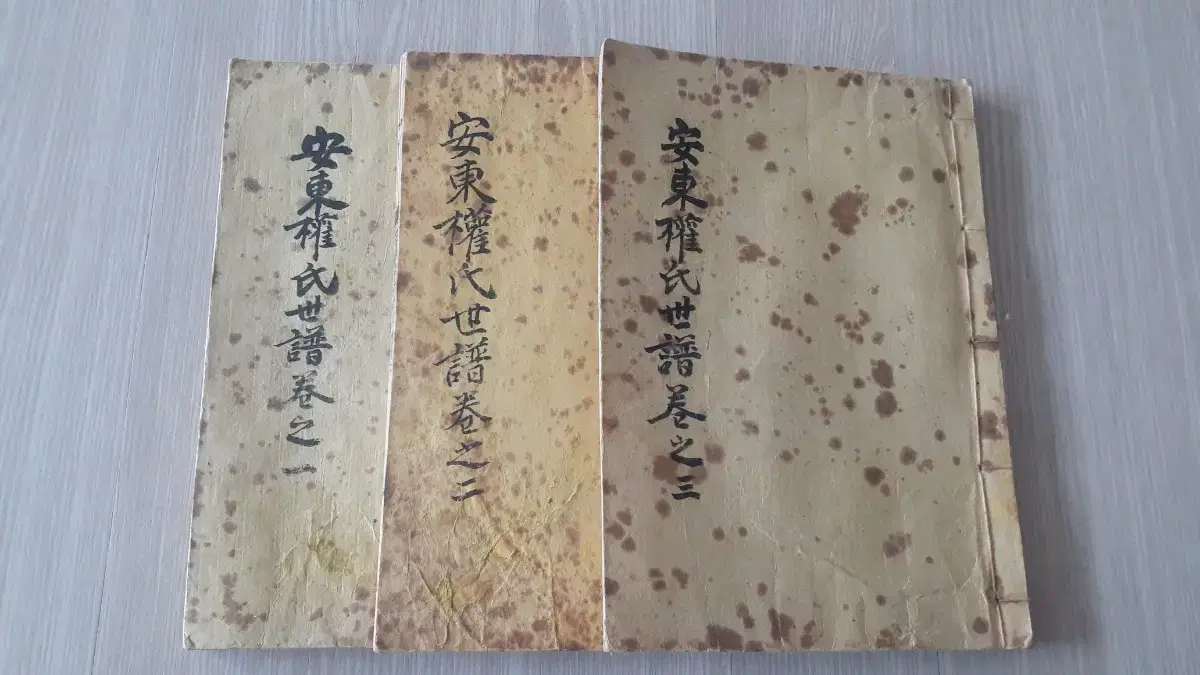 安東權氏世譜卷之一
安東權氏世譜卷之二
安東權氏世譜卷之三